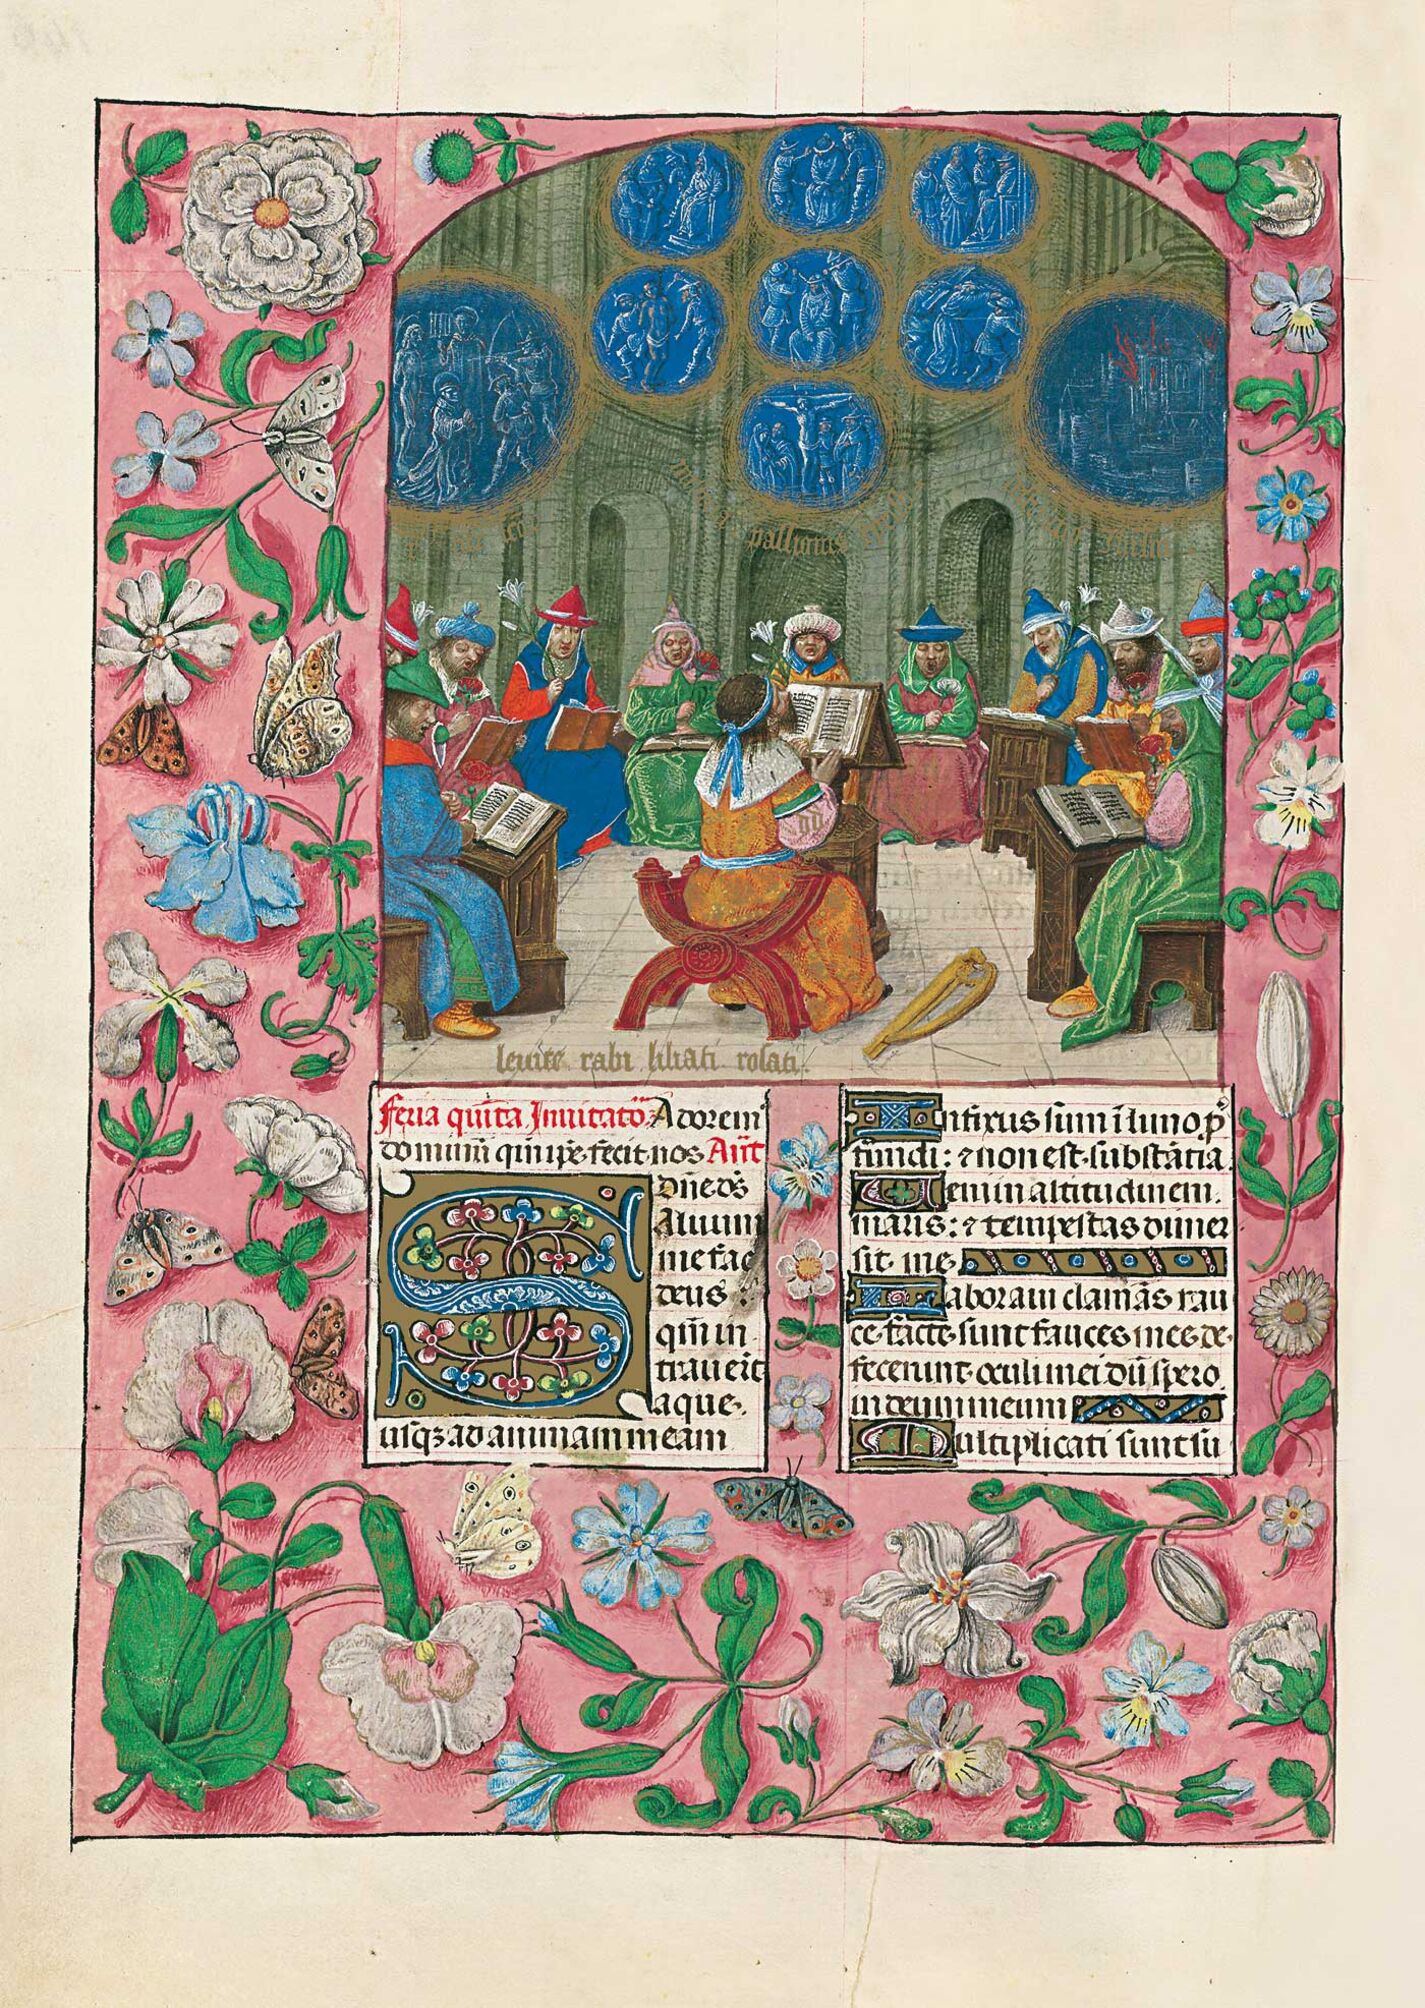 passionis
levite rabi liliati rosati.
feria quīta Inuitatō Adorem⁹
dominū qm̄ ip̄e fecit nos Añt
Dn̄e de⁹
Aluum
me fac
deus :
qm̄ in
trauer̄t
aque
usqꝫ ad animam meam
Infixus sum ī limo ꝓ
fundi : ⁊ non est substātia.
Ueni in altitudinem
maris : ⁊ tempestas dimer
sit me
Laboraui clamās rau
ce facte sunt fauces mee de
fecerunt oculi mei dū spero
in deum meum
Multiplicati sunt su